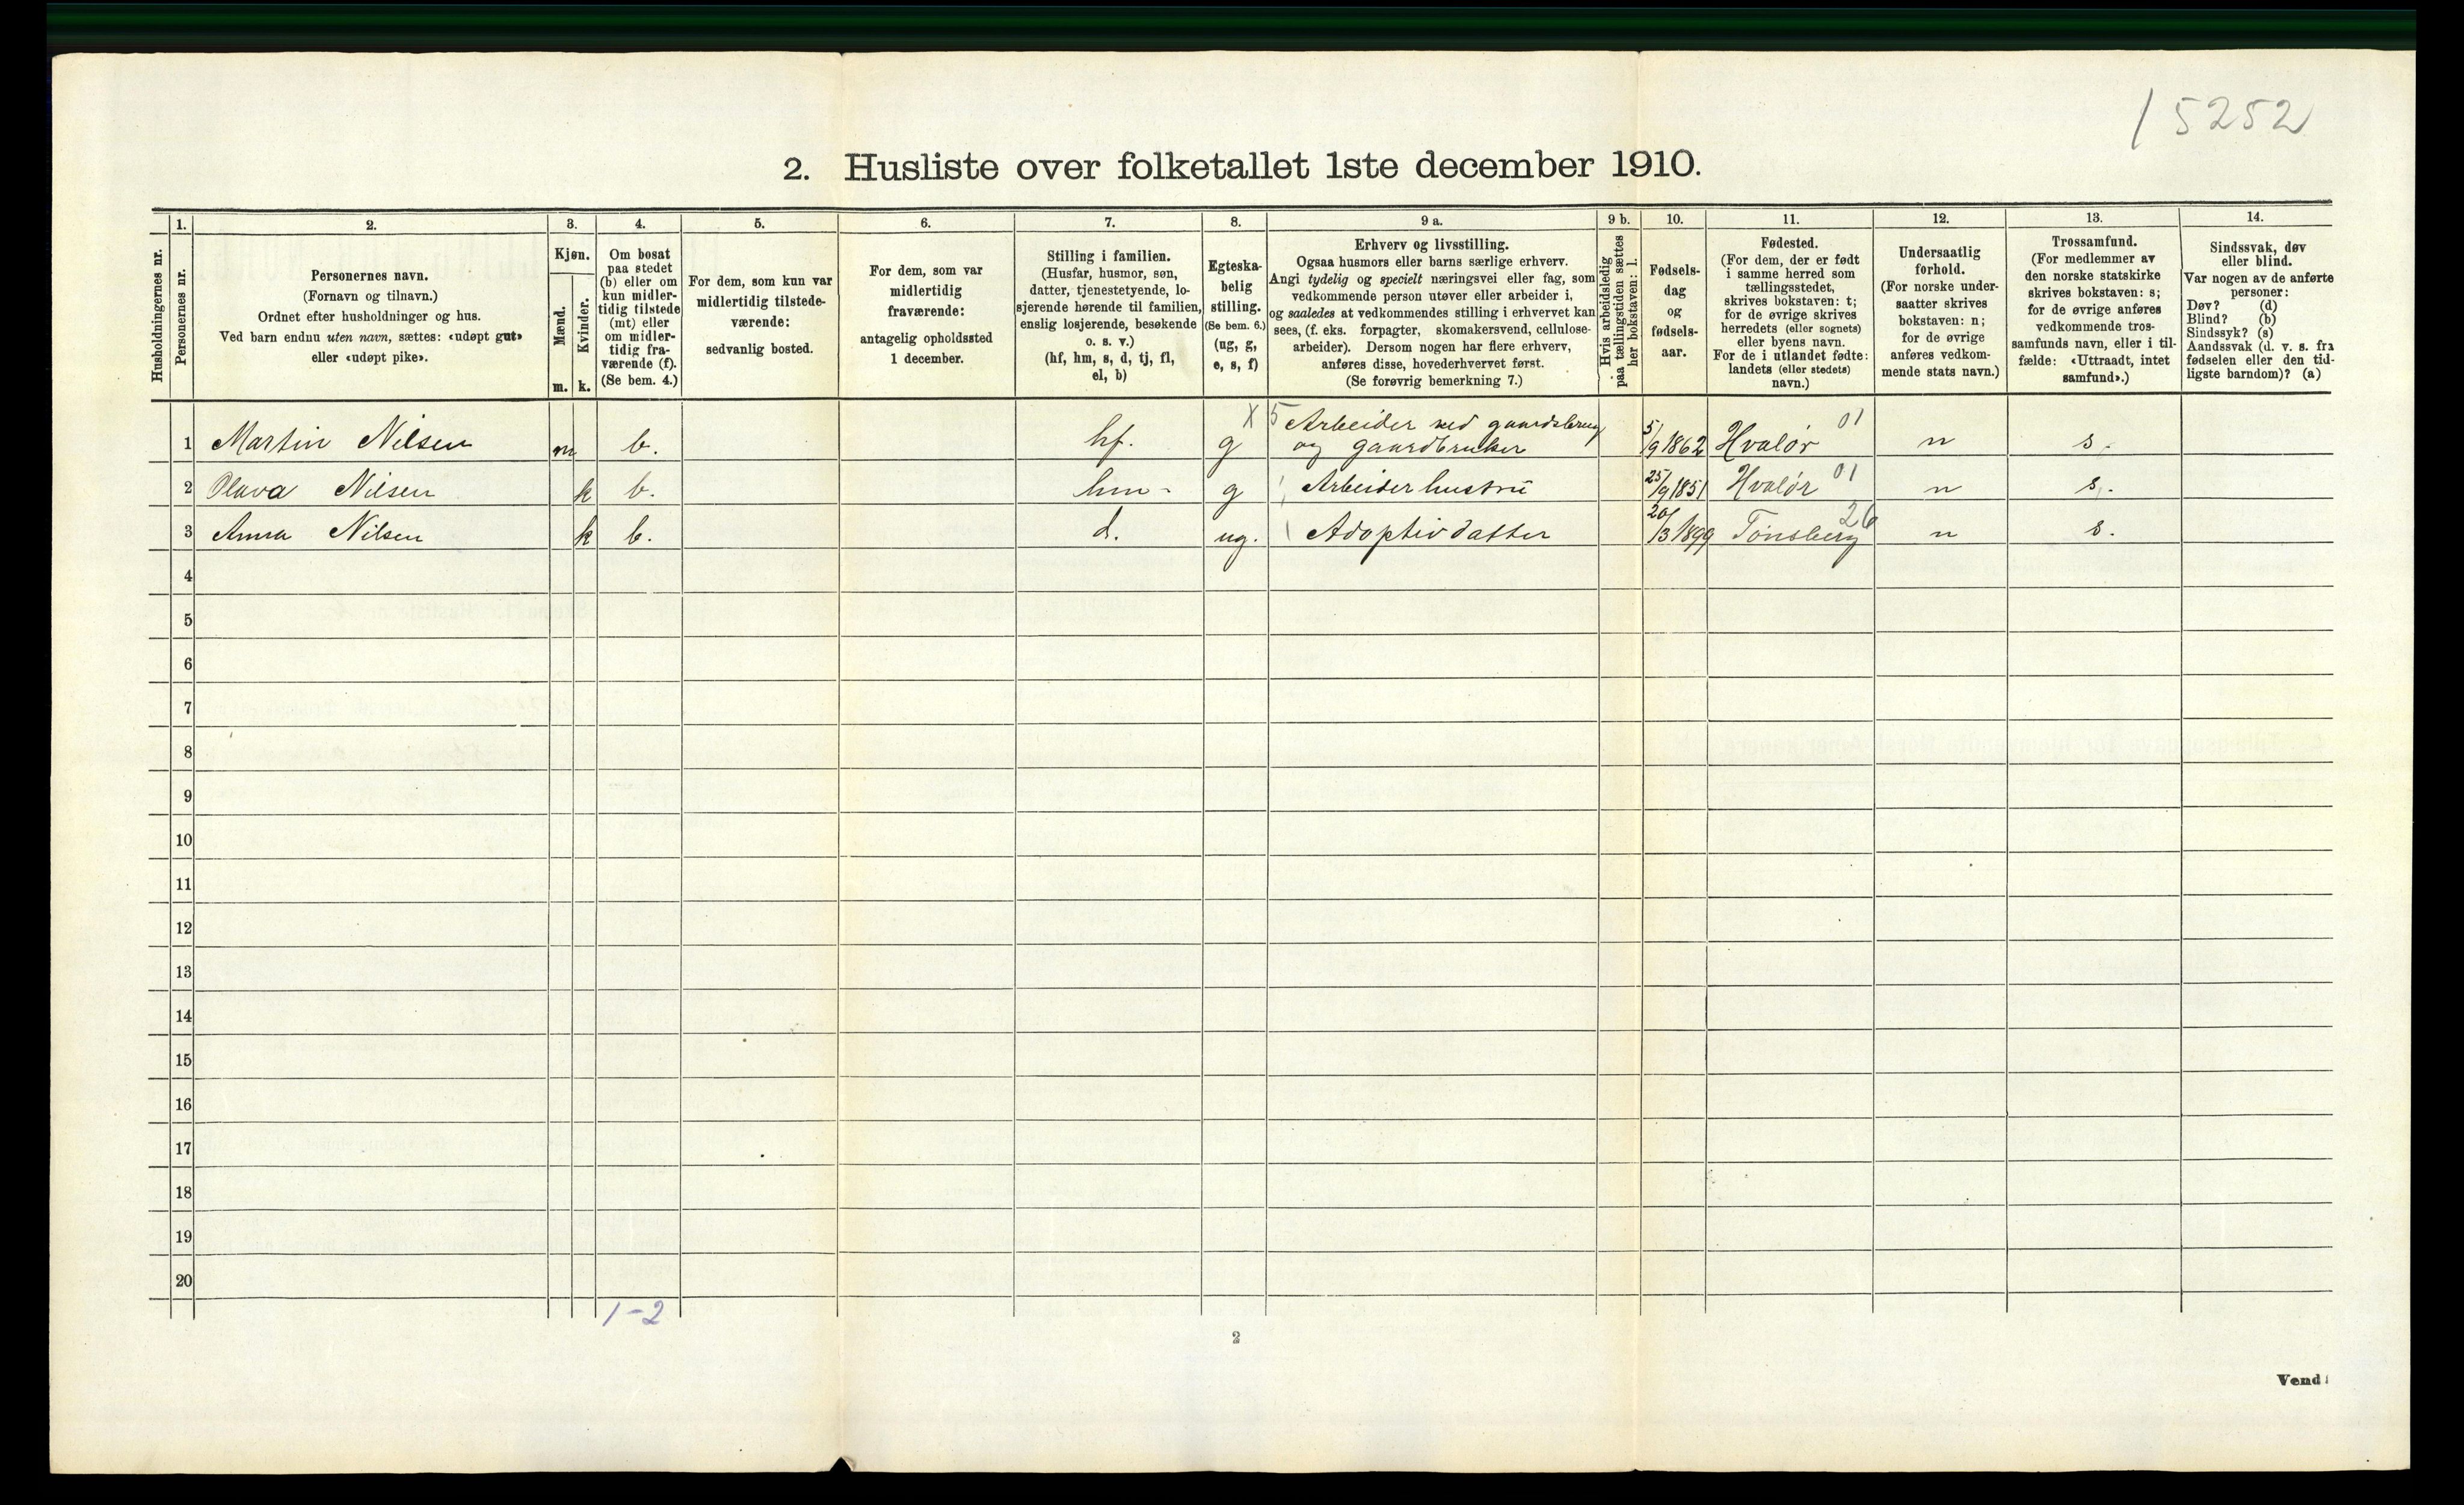 15252
2. Husliste over folketallet 1ste december 1910.
Husholdningernes nr.
1.
Personernes nr.
2.
Personernes navn.
(Fornavn og tilnavn.)
Ordnet efter husholdninger og hus.
Ved barn endnu uten navn, sættes: «udøpt gut»
eller «udøpt pike».
3.
Kjøn.
Mænd.
Kvinder.
m.
k.
4.
Om bosat
paa stedet
(b) eller om
kun midler-
tidig tilstede
(mt) eller
om midler-
tidig fra-
værende (f).
(Se bem. 4.)
5.
For dem, som kun var
midlertidig tilstede-
værende:
sedvanlig bosted.
6.
For dem, som var
midlertidig
fraværende:
antagelig opholdssted
1 december.
7.
Stilling i familien.
(Husfar, husmor, søn,
datter, tjenestetyende, lo-
sjerende hørende til familien,
enslig losjerende, besøkende
o. s. v.)
(hf, hm, s, d, tj, fl,
el, b)
8.
Egteska-
belig
stilling.
(Se bem. 6.)
(ug, g,
e, s, f)
9 a.
Erhverv og livsstilling.
Ogsaa husmors eller barns særlige erhverv.
Angi tydelig og specielt næringsvei eller fag, som
vedkommende person utøver eller arbeider i,
og saaledes at vedkommendes stilling i erhvervet kan
sees, (f. eks. forpagter, skomakersvend, cellulose-
arbeider). Dersom nogen har flere erhverv,
anføres disse, hovederhvervet først.
(Se forøvrig bemerkning 7.)
9 b.
Hvis arbeidsledig
paa tællingstiden sættes
her bokstaven: l.
10.
Fødsels-
dag
og
fødsels-
aar.
11.
Fødested.
(For dem, der er født
i samme herred som
tællingsstedet,
skrives bokstaven: t;
for de øvrige skrives
herredets (eller sognets)
eller byens navn.
For de i utlandet fødte:
landets (eller stedets)
navn.)
12.
Undersaatlig
forhold.
(For norske under-
saatter skrives
bokstaven: n;
for de øvrige
anføres vedkom-
mende stats navn.)
13.
Trossamfund.
(For medlemmer av
den norske statskirke
skrives bokstaven: s;
for de øvrige anføres
vedkommende tros-
samfunds navn, eller i til-
fælde: «Uttraadt, intet
samfund».)
14.
Sindssvak, døv
eller blind.
Var nogen av de anførte
personer:
Døv? (d)
Blind? (b)
Sindssyk? (s)
Aandssvak (d. v. s. fra
fødselen eller den tid-
ligste barndom)? (a)
1 Martin Nilsen m b. hf. g X 5 Arbeider ved gaardsbrug og gaardbruker 5/9 1862 Hvalør 01 n s.
2 Olava Nilsen k b. hm - g Arbeiderhustru 25/9 1851 Hvalør 01 n s.
3 Anna Nilsen k b. d. ug. Adoptivdatter 20/3 1899 Tønsberg 26 n s.
4
5
6
7
8
9
10
11
12
13
14
15
16
17
18
19
20
1-2
2
Vend!